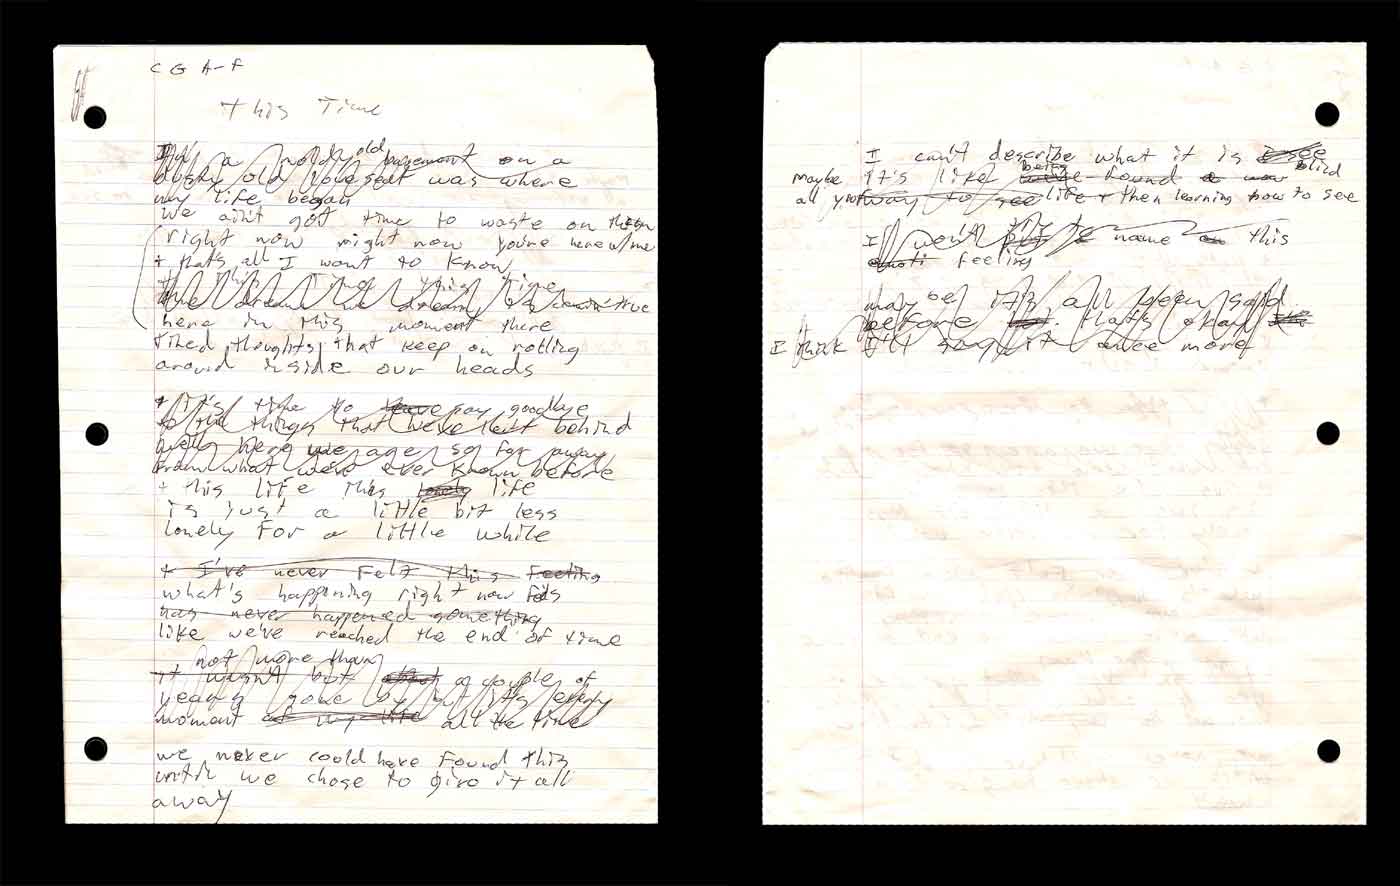 C G A-F
This Time
a moldy old basement on a
dusty old love seat was where
my life began
We ain't got time to waste on them
right now right now you're here w/me
+ that's all I want to know
this time
the dream we dream is comin' true
here in this moment there
tired thoughts that keep on rolling
around inside our heads
+ it's time to leave say goodbye
to the things that we've left behind
well here we are so far away
from what we've ever known before
+ this life this lonely life
is just a little bit less
lonely for a little while
+ I've never felt this feeling
what's happening right now feels
has never happened something
like we've reached the end of time
not more than
it wasn't but a couple of
years gone by but it's every
moment of my life all the time
we never could have found this
until we chose to give it all
away
I can't describe what it is to see
maybe it's like being found blind
all your way to see life + then learning how to see
I won't name this
emoti feeling
maybe it's all been said
before that's what
I think I'll say it once more